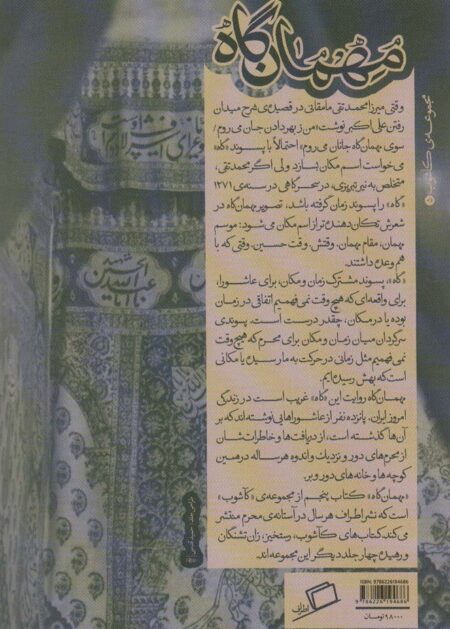 مهمان گاه
مجموعه‌ی کآشوب ۵
وقتی میرزا محمدتقی مامقانی در قصیده‌ی شرح میدان
رفتن علی‌اکبر نوشت: «من ز بهر دادن جان می‌روم/
سوی مهمان‌گاه جانان می‌روم» احتمالاً با پسوند «گاه»
می‌خواست اسم مکان بسازد ولی اگر محمدتقی،
متخلص به نیر تبریزی، در سحرگاهی در سنه‌ی ۱۲۷۱
«گاه» را پسوند زمان گرفته باشد، تصویر مهمان‌گاه در
شعرش تکان‌دهنده‌تر از اسم مکان می‌شود: موسم
مهمان، مقام مهمان. وقتش، وقت حسین. وقتی که با
هم وعده داشتند.
«گاه»، پسوند مشترک زمان و مکان، برای عاشورا،
برای واقعه‌ای که هیچ‌وقت نمی‌فهمیم اتفاقی در زمان
بوده یا در مکان، چقدر درست است. پسوندی
سرگردان میان زمان و مکان برای محرم که هیچ‌وقت
نمی‌فهمیم مثل زمانی در حرکت به ما رسیده یا مکانی
است که بهش رسیده‌ایم.
مهمان‌گاه روایت این «گاه» غریب است در زندگی
امروز ایران. پانزده نفر از عاشوراهایی نوشته‌اند که بر
آن‌ها گذشته است، از دریافت‌ها و خاطرات‌شان
از محرم‌های دور و نزدیک و اندوه هرساله در همین
کوچه‌ها و خانه‌های دور و بر.
«مهمان‌گاه» کتاب پنجم از مجموعه‌ی «کآشوب»
است که نشر اطراف هر سال در آستانه‌ی محرم منتشر
می‌کند. کتاب‌های کآشوب، رستخیز، زان تشنگان
و رهیده چهار جلد دیگر این مجموعه‌اند.
السلام علیک یا اباعبدالله
الحسین الشهید
اطراف
ISBN: 9786226194686
9 786226 194686
۹۸۰۰۰ تومان